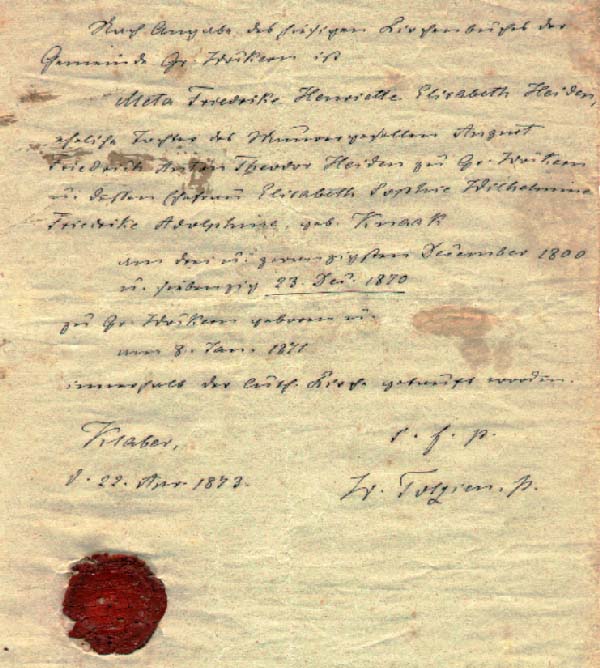 Nach Angabe des hiesigen Kirchenbuches der
Gemeinde Gr. Wokern ist
Meta Friedrike Henriette Elisabeth Heiden,
eheliche Tochter des Maurergesellen August
Friedrich Anton Theodor Heiden zu Gr. Wokern
u. dessen Ehefrau Elisabeth Sophie Wilhelmine
Friedrike Adolphine, geb. Knaak
am drei u. zwanzigsten December 1800
u. siebenzig 23. Dec. 1870
zu Gr. Wokern geboren u.
am 8. Jan. 1871
innerhalb der luth. Kirche getauft worden.
Klaber,
d. 22. 1873.
p.